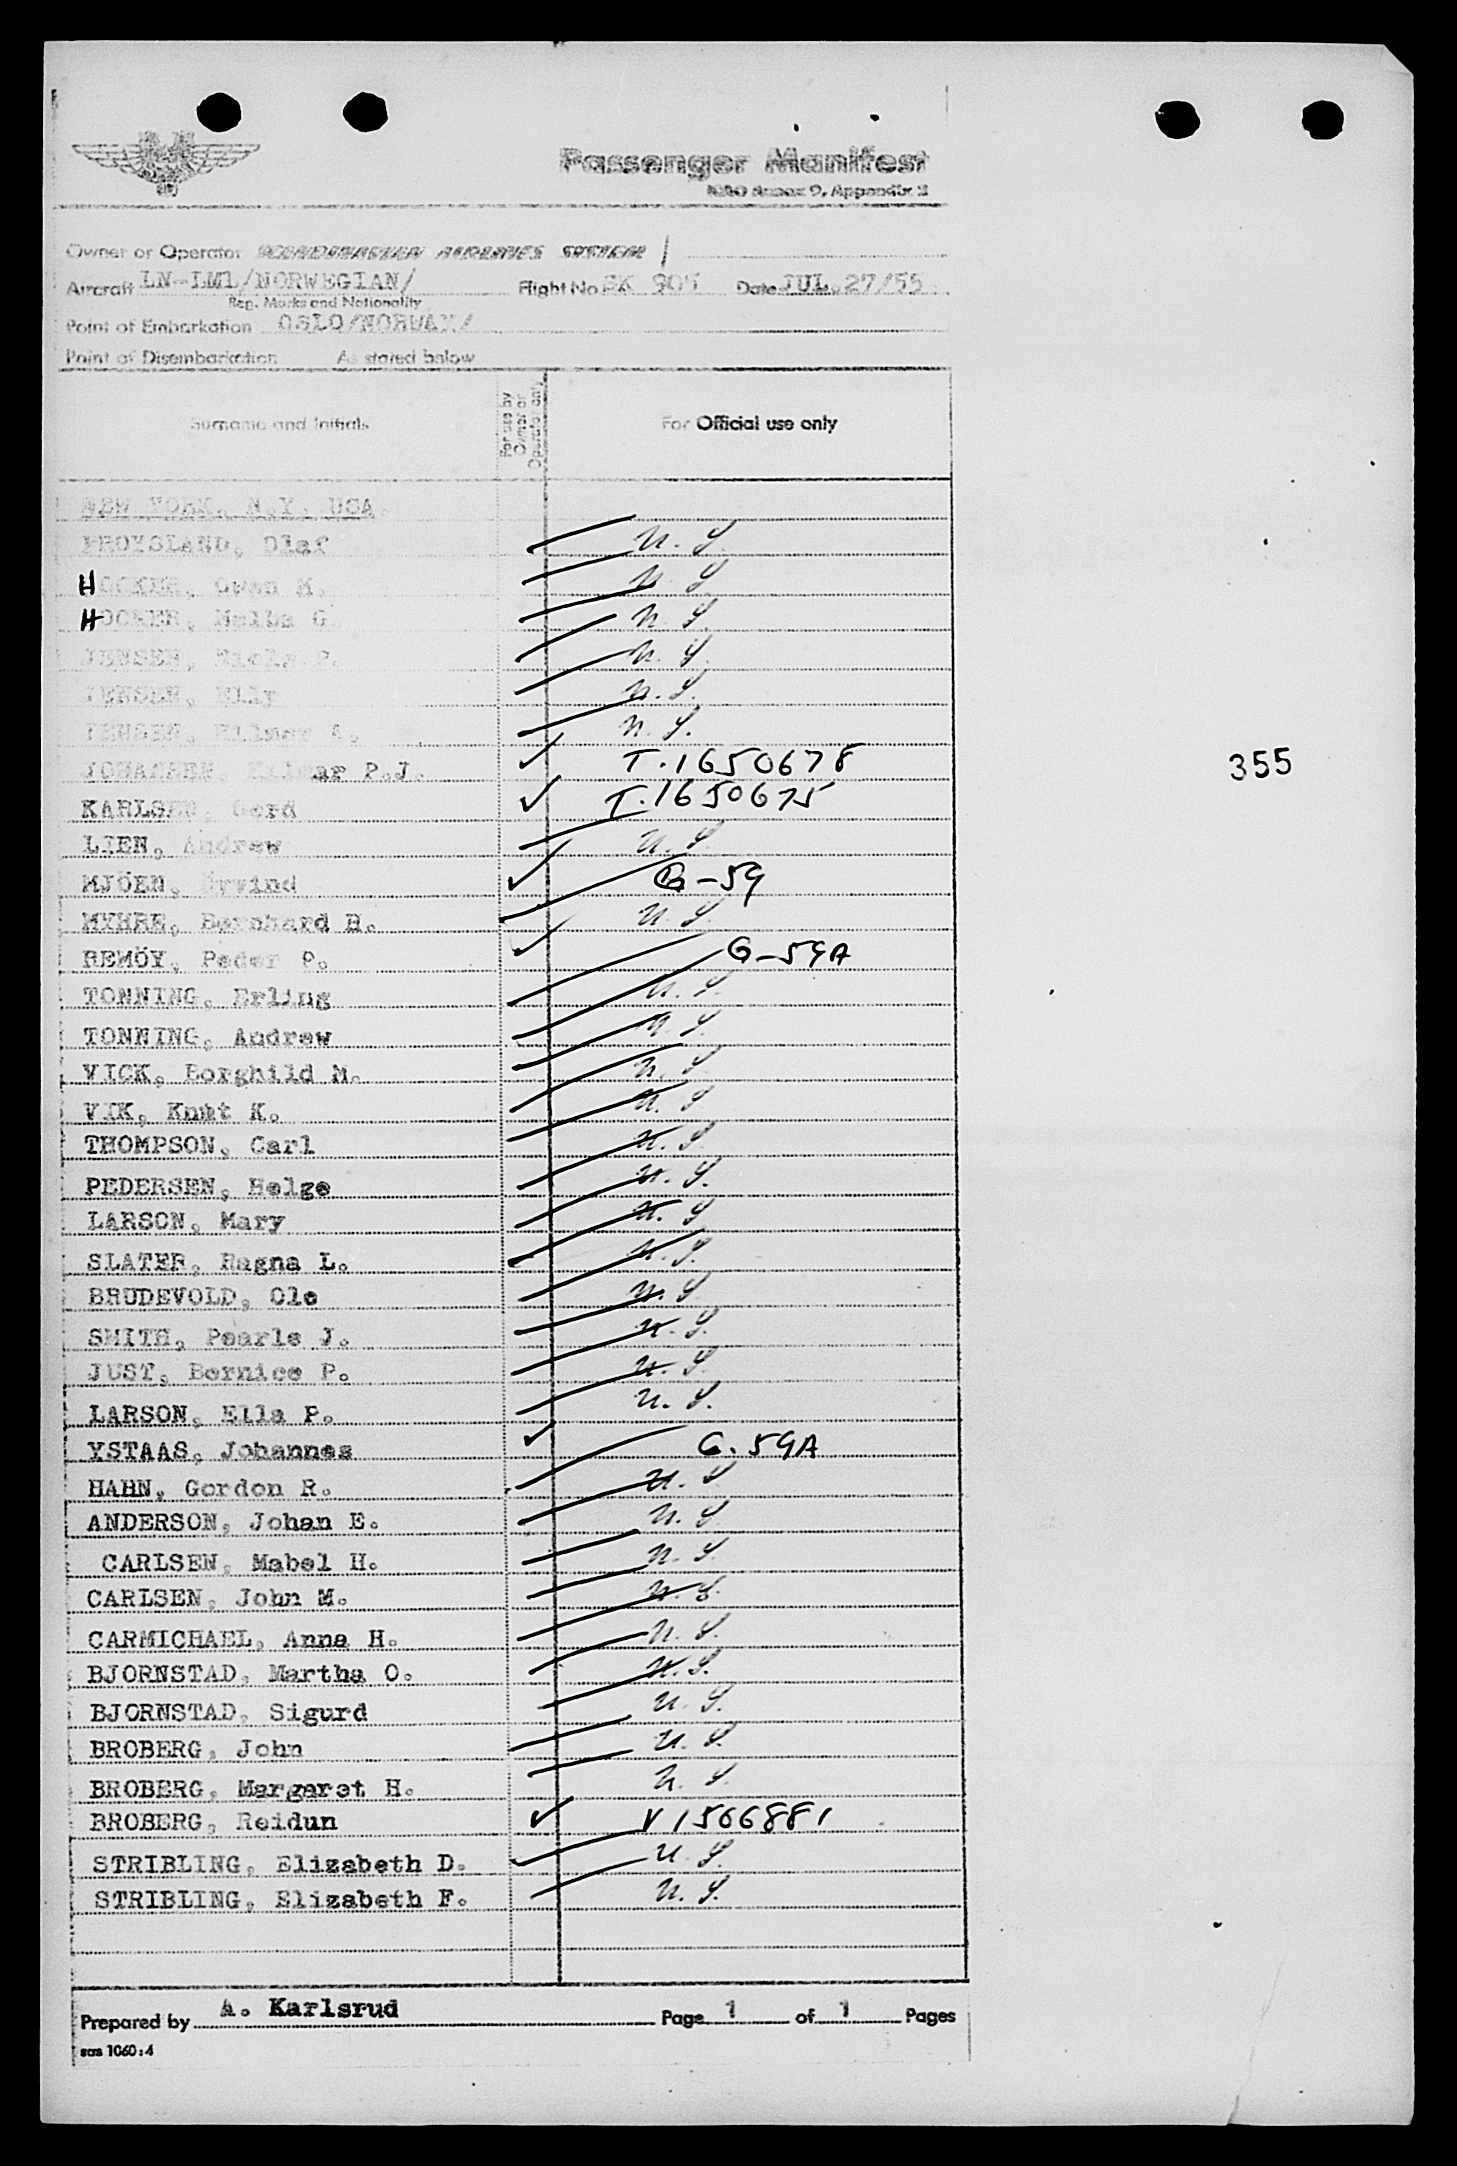 Passenger Manifest
ICAO Annex 9, Appendix 2
Owner or Operator SCANDINAVIAN AIRLINES SYSTEM
Aircraft LN-LML/NORWEGIAN/ Flight No SK 905 Date JUL. 27/55
Reg. Marks and Nationality
Point of Embarkation OSLO/NORWAY/
Point of Disembarkation As stated below
Surname and Initials For use by Owner or Operator only For Official use only
NEW YORK, N.Y. USA
FROYSLAND, Olaf U.S.
HOCKER, Owen U.S.
HOOKER, Melba G U.S.
JENSEN, Niels P. U.S.
JENSEN, Elly U.S.
JENSEN, A. U.S.
JOHANSEN, Hilmar P.J. T.1650678
355
KARLSEN, Gerd T.1650675
LIEN, Andrew U.S.
MJÖEN, Öyvind G-59
MYHRE, Bernhard B. U.S.
REMÖY, Peder P. G-59A
TONNING, Erling U.S.
TONNING, Andrew U.S.
VICK, Borghild M. U.S.
VIK, Knut K. U.S.
THOMPSON, Carl U.S.
PEDERSEN, Helge U.S.
LARSON, Mary U.S.
SLATER, Ragna L. U.S.
BRUDEVOLD, Ole U.S.
SMITH, Pearle J. U.S.
JUST, Bernice P. U.S.
LARSON, Ella P. U.S.
YSTAAS, Johannes G.59A
HAHN, Gordon R. U.S.
ANDERSON, Johan E. U.S.
CARLSEN, Mabel H. U.S.
CARLSEN, John M. U.S.
CARMICHAEL, Anna H. U.S.
BJORNSTAD, Martha O. U.S.
BJORNSTAD, Sigurd U.S.
BROBERG, John U.S.
BROBERG, Margaret H. U.S.
BROBERG, Reidun V1566881
STRIBLING, Elizabeth D. U.S.
STRIBLING, Elizabeth F. U.S.
Prepared by A. Karlsrud Page 1 of 1 Pages
sas 1060:4